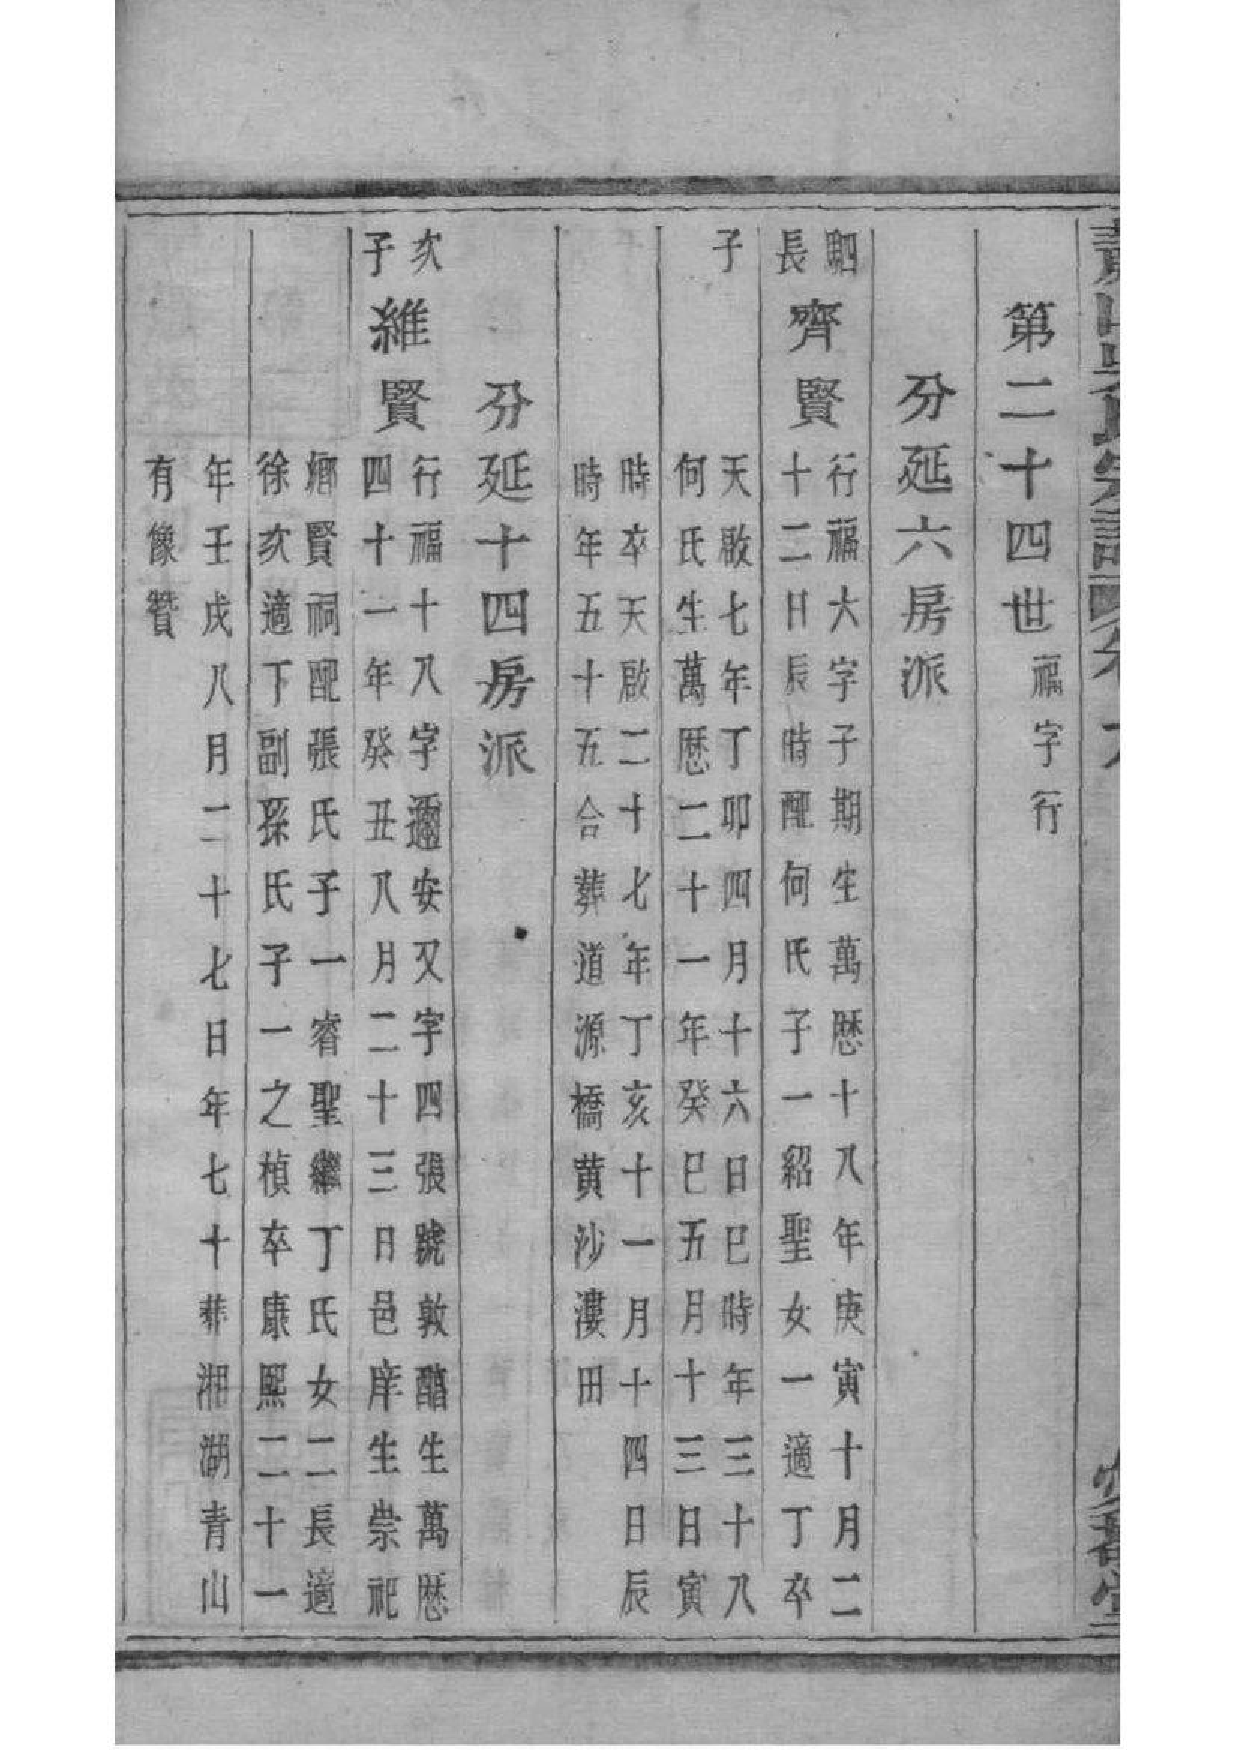 第二十四世 福字行
分延六房派
駟長子 齊賢
行福六字子期生萬歷十八年庚寅十月二
十二日辰時配何氏子一紹聖女一適丁卒
天啟七年丁卯四月十六日巳時年三十八
何氏生萬歷二十一年癸巳五月十三日寅
時卒天啟二十七年丁亥十一月十四日辰
時年五十五合葬道源橋黄沙漊田
分延十四房派
次子 維賢
行福十八字邇安又字四張號敦醕生萬歷
四十一年癸丑八月二十三日邑庠生崇祀
鄉賢祠配張氏子一睿聖繼丁氏女二長適
徐次適下副孫氏子一之楨卒康熙二十一
年壬戌八月二十七日年七十葬湘湖青山
有像贊